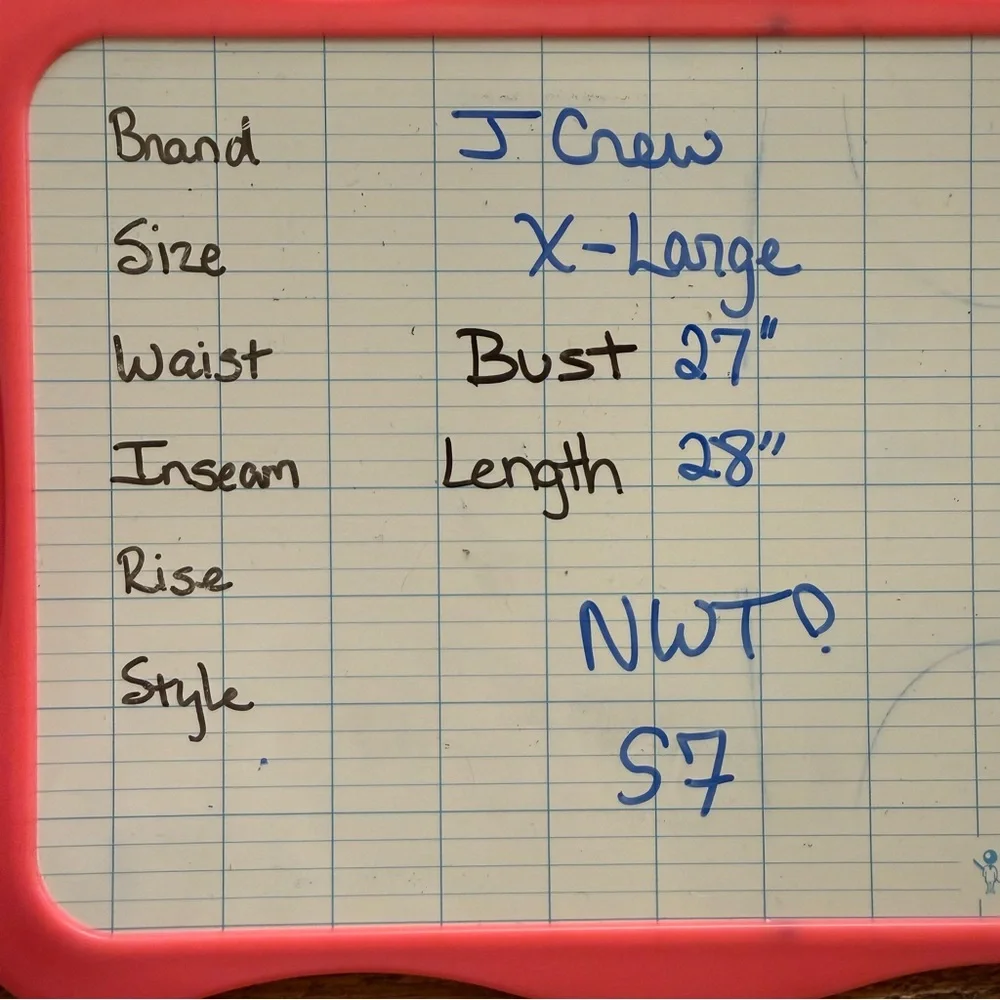 Brand J Crew
Size X-Large
Waist Bust 27"
Inseam Length 28"
Rise
NWT!
Style
S7